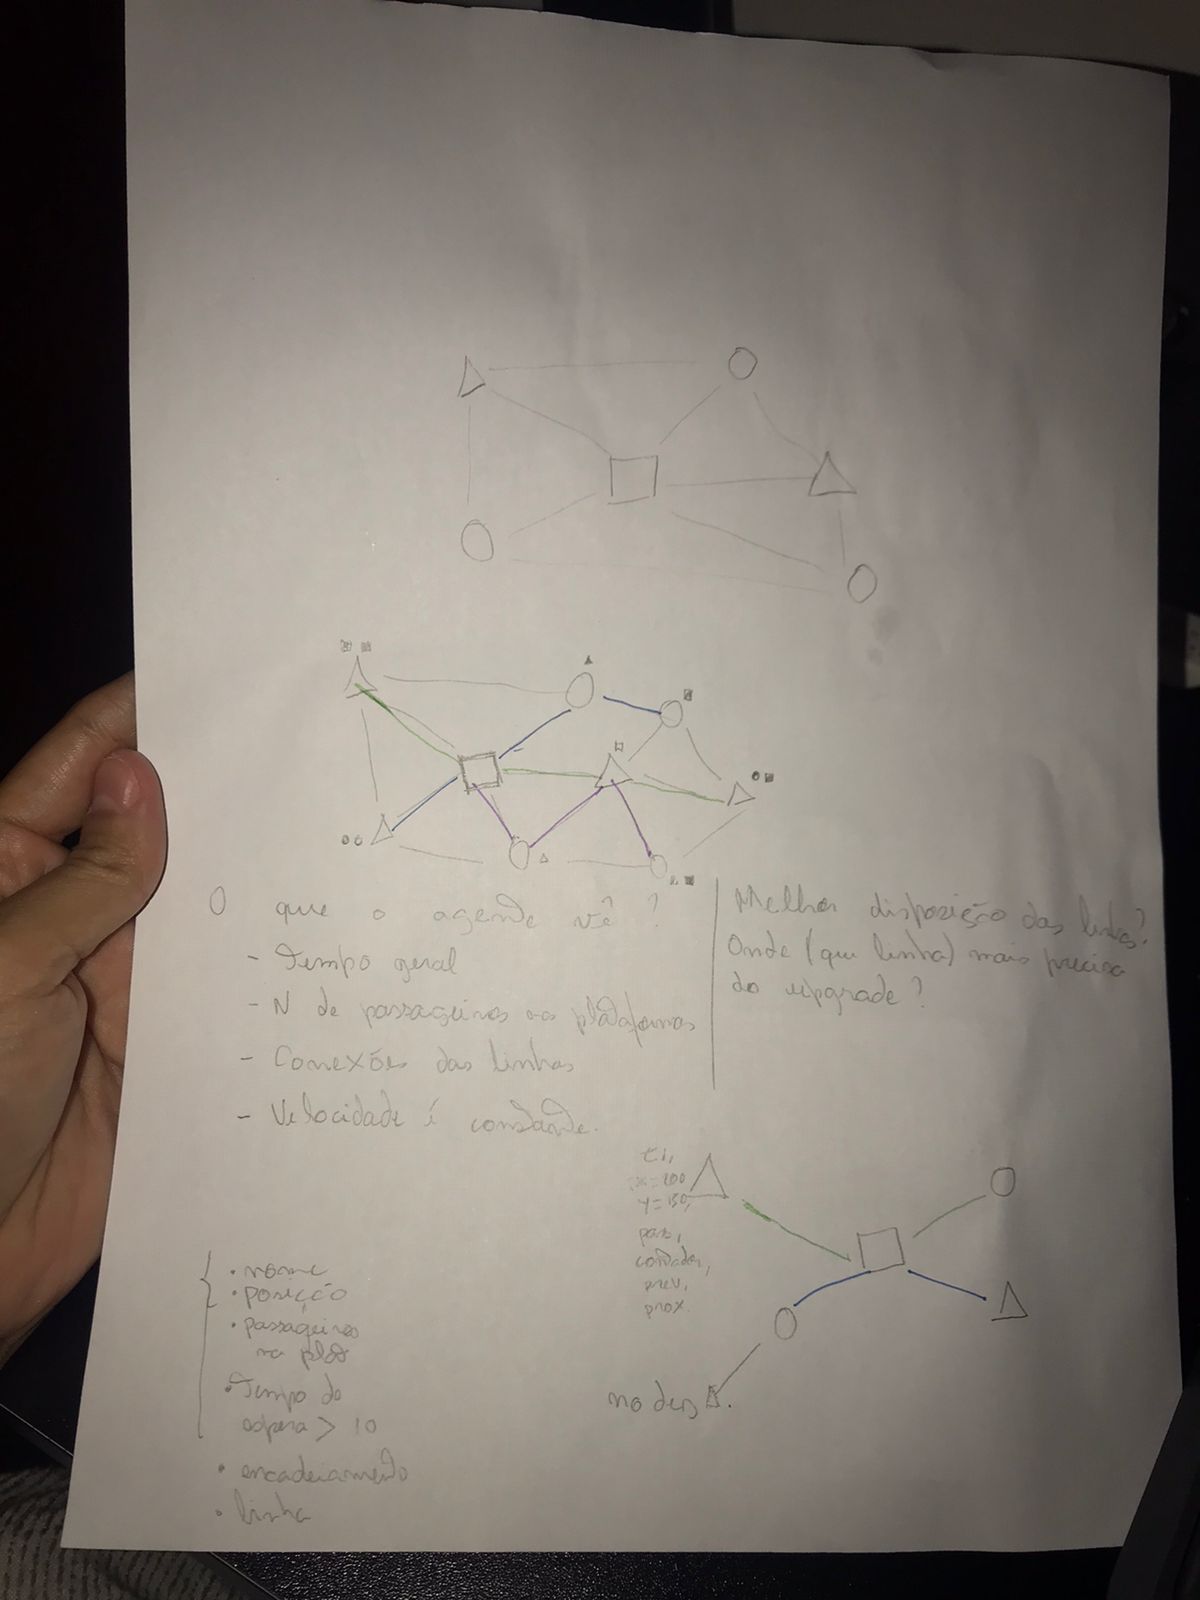 O que o agende vê?
- Tempo geral
- N de passageiros nas plataformas
- Conexões das linhas
- Velocidade é constante.
Melhor disposição das linhas?
Onde (que linha) mais precisa
do upgrade?
t1,
x=200
y=150,
pass,
contador,
prev,
prox.
• nome
• posição
• passageiros
na plat
• Tempo de
espera > 10
• encadeiamento
• linha